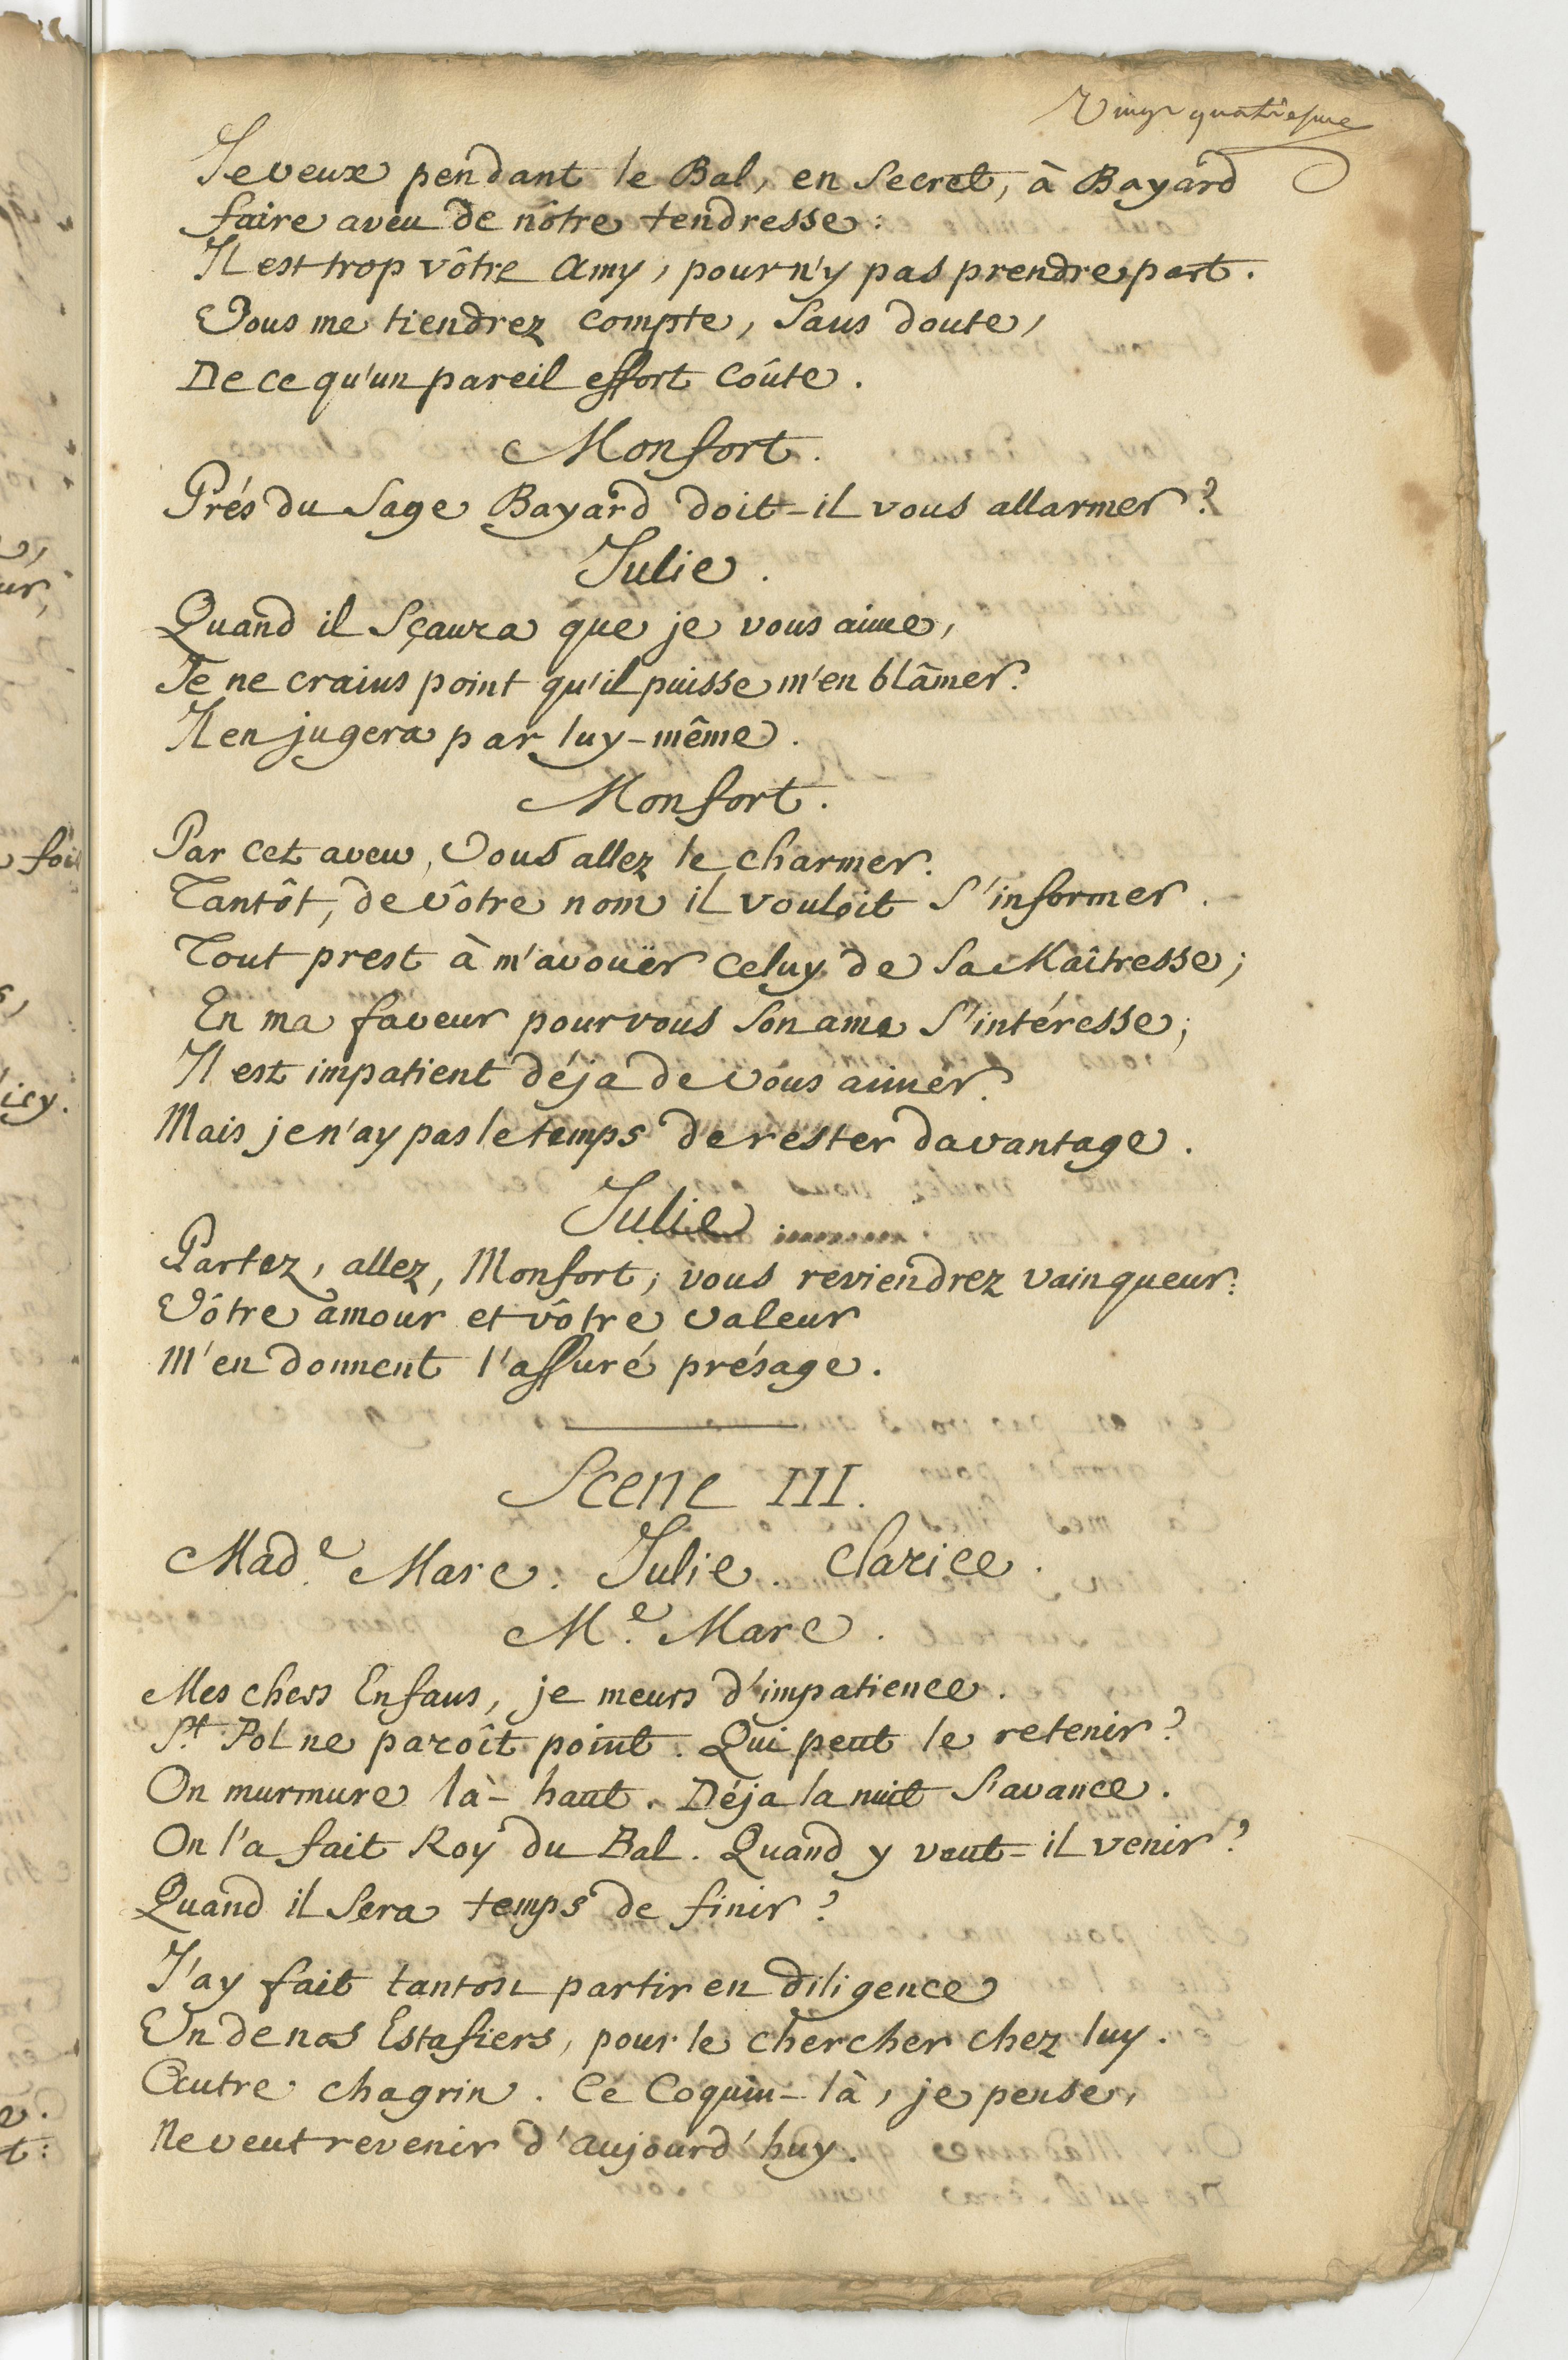 Vingt quatriesme
Je veux pendant le Bal, en Secret, à Bayard
faire aveu de nôtre tendresse:
Il est trop vôtre Amy, pour n'y pas prendre part.
Vous me tiendrez compte, Sans doute,
De ce qu'un pareil effort coûte.
Monfort.
Prés du Sage Bayard doit-il vous allarmer?
Julie.
Quand il Sçaura que je vous aime,
Je ne crains point qu'il puisse m'en blâmer.
Il en jugera par luy-même.
Monfort.
Par cet aveu, Vous allez le charmer.
Tantôt, de vôtre nom il vouloit S'informer.
Tout prest à m'avoüer celuy de Sa Maîtresse;
En ma faveur pour vous Son ame S'intéresse;
Il est impatient déja de vous aimer.
Mais je n'ay pas le temps de rester davantage.
Julie
Partez, allez, Monfort; vous reviendrez vainqueur:
Vôtre amour et vôtre valeur
M'en donnent l'assuré présage.
Scene III.
Mad.e Marc. Julie. Clarice.
M.e Marc.
Mes chers Enfans, je meurs d'impatience.
St. Pol ne paroît point. Qui peut le retenir?
On murmure là-haut. Déja la nuit S'avance.
On l'a fait Roy du Bal. Quand y veut-il venir?
Quand il Sera temps de finir?
J'ay fait tantost partir en diligence
Un de nos Estafiers, pour le chercher chez luy.
Autre chagrin. Ce Coquin-là, je pense,
Ne veut revenir d'aujourd'huy.